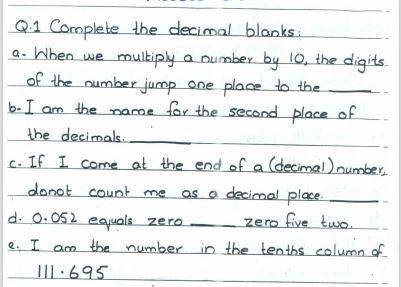 Q.1 Complete the decimal blanks:
a. When we multiply a number by 10, the digits
of the number jump one place to the ____
b. I am the name for the second place of
the decimals. ____
c. If I come at the end of a (decimal) number,
donot count me as a decimal place. ____
d. 0.052 equals zero ____ zero five two.
e. I am the number in the tenths column of
111.695